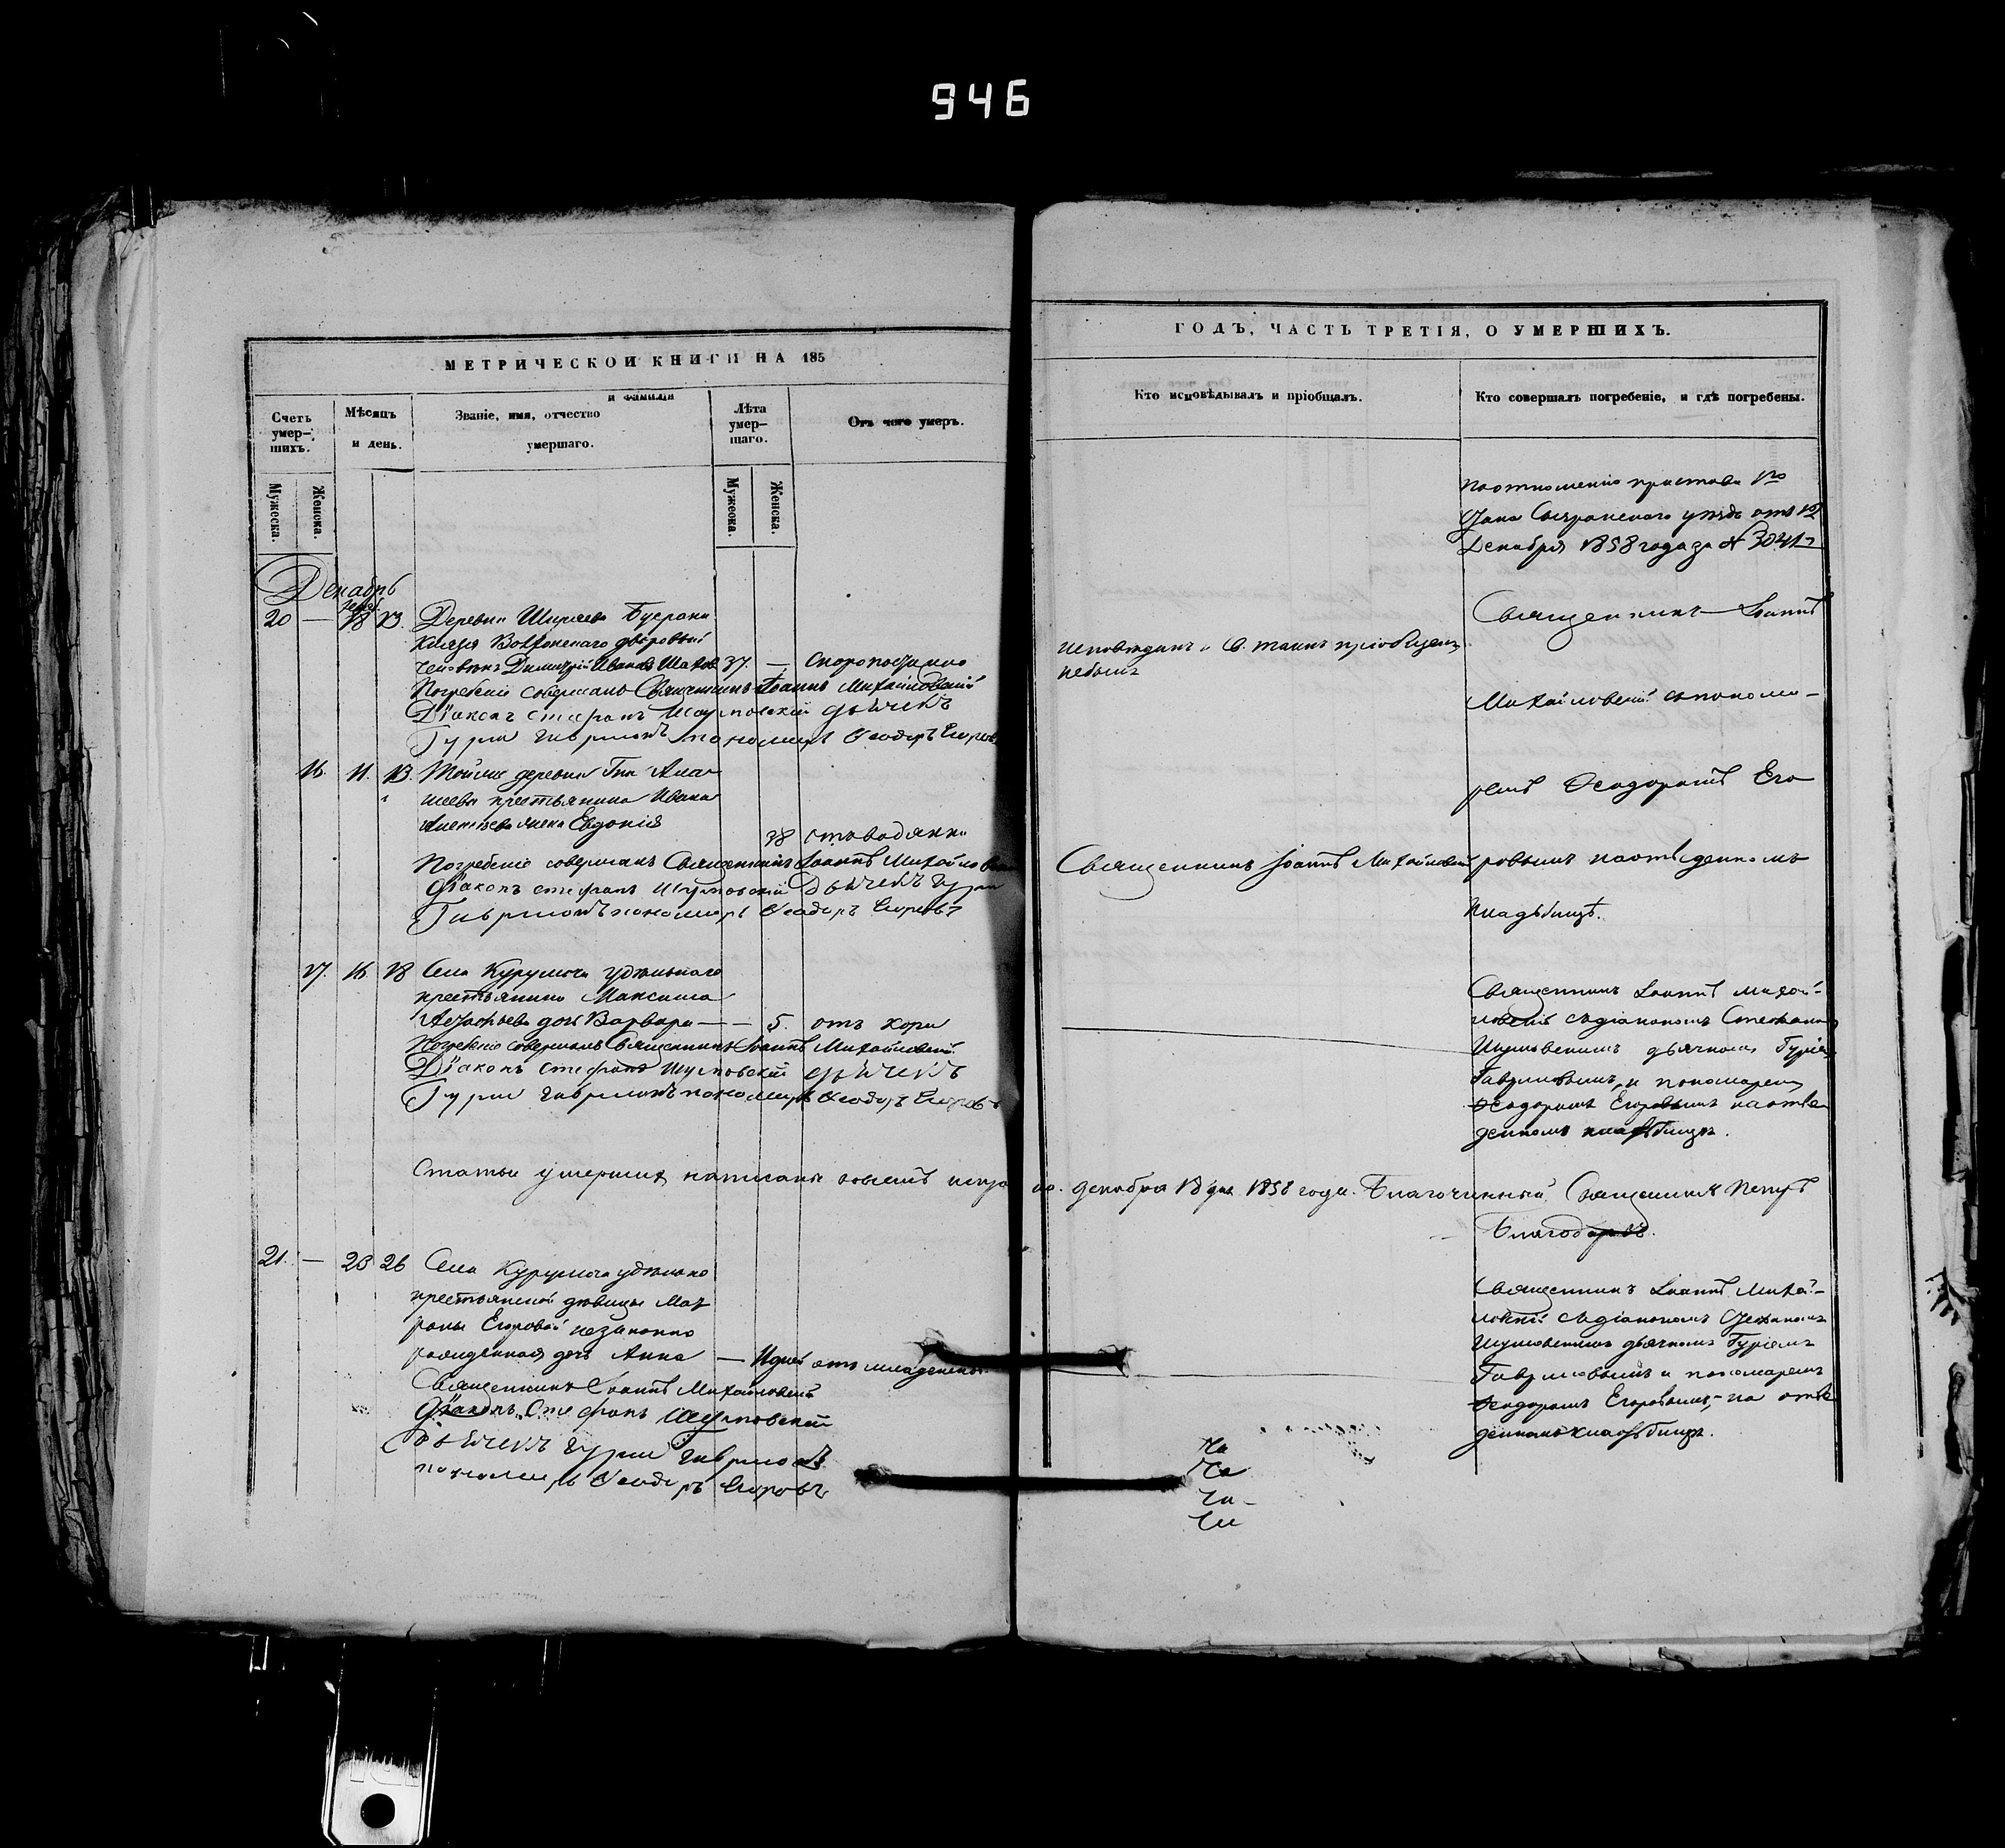 946
МЕТРИЧЕСКОЙ КНИГИ НА 185
Счетъ умер-шихъ.
Мѣсяцъ и день.
Званіе, имя, отчество и фамилія умершаго.
Лѣта умер-шаго.
Отъ чего умеръ.
Мужеска.
Женска.
Мужеска.
Женска.
Декабрь
20 — 13.
Деревни Буерака
Князя Волконскаго дворовый
человѣкъ Димитрій Ивановъ 37. — скоропостижно
Погребеніе совершалъ Священникъ Іоаннъ Михайловскій
Діаконъ Стефанъ дьячекъ
Гурій Гавриловъ пономарь Ѳеодоръ Егоровъ
16. 11. 13. Тойже деревни
крестьянина Ивана
жена Евдокія
38 отъ водянки
Погребеніе совершалъ Священникъ Іоаннъ Михайловскій
Діаконъ Стефанъ Дьячекъ Гурій
Гавриловъ пономарь Ѳеодоръ Егоровъ
17. 16 18 Села Курумоча удѣльнаго
крестьянина Максима
дочь Варвара — — 5. отъ кори
Погребеніе совершалъ Священникъ Іоаннъ Михайловскій
Діаконъ Стефанъ дьячекъ
Гурій Гавриловъ пономарь Ѳеодоръ Егоровъ
Статьи умершихъ написаны
21. — 23 26 Села Курумоча удѣльно
крестьянской дѣвицы Мат
роны Егоровой незаконно
рожденная дочь Анна — отъ младенческ
Священникъ Іоаннъ Михайловскій
Діаконъ Стефанъ
Дьячекъ Гурій Гавриловъ
пономарь Ѳеодоръ Егоровъ
ГОДЪ, ЧАСТЬ ТРЕТІЯ, О УМЕРШИХЪ.
Кто исповѣдывалъ и пріобщалъ.
Кто совершалъ погребеніе, и гдѣ погребены.
по отношенію пристава 1го
Стана Сызранскаго уѣзда отъ 12
Декабря 1858 года за № 3041
Священникъ Іоаннъ
исповѣданъ и С. таинъ пріобщенъ
небылъ
Михайловскій съ понома-
ремъ Ѳеодоромъ Его
Священникъ Іоаннъ Михайловскій
ровымъ на отведенномъ
кладбищѣ.
Священникъ Іоаннъ Михай-
ловскій съ діакономъ Стефаномъ
дьячкомъ Гуріемъ
Гавриловымъ и пономаремъ
Ѳеодоромъ Егоровымъ на отве
денномъ кладбищѣ.
декабря 18 дня 1858 года. Благочинный, Священникъ Петръ
Священникъ Іоаннъ Михай-
ловскій съ діакономъ Стефаномъ
дьячкомъ Гуріемъ
Гавриловымъ и пономаремъ
Ѳеодоромъ Егоровымъ, на отве
денномъ кладбищѣ.